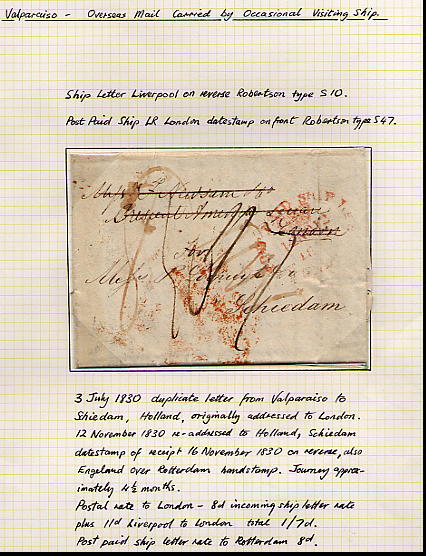 Valparaiso - Overseas Mail Carried by Occasional Visiting Ship.
Ship Letter Liverpool on reverse Robertson type S10.
Post Paid Ship LR London datestamp on font Robertson type S47.
London
For
Schiedam
3 July 1830 duplicate letter from Valparaiso to
Shiedam, Holland, originally addressed to London.
12 November 1830 re-addressed to Holland, Schiedam
datestamp of receipt 16 November 1830 on reverse, also
Engeland over Rotterdam handstamp. Journey appro-
imately 4½ months.
Postal rate to London - 8d incoming ship letter rate
plus 11d Liverpool to London total 1/7d.
Post paid ship letter rate to Rotterdam 8d.